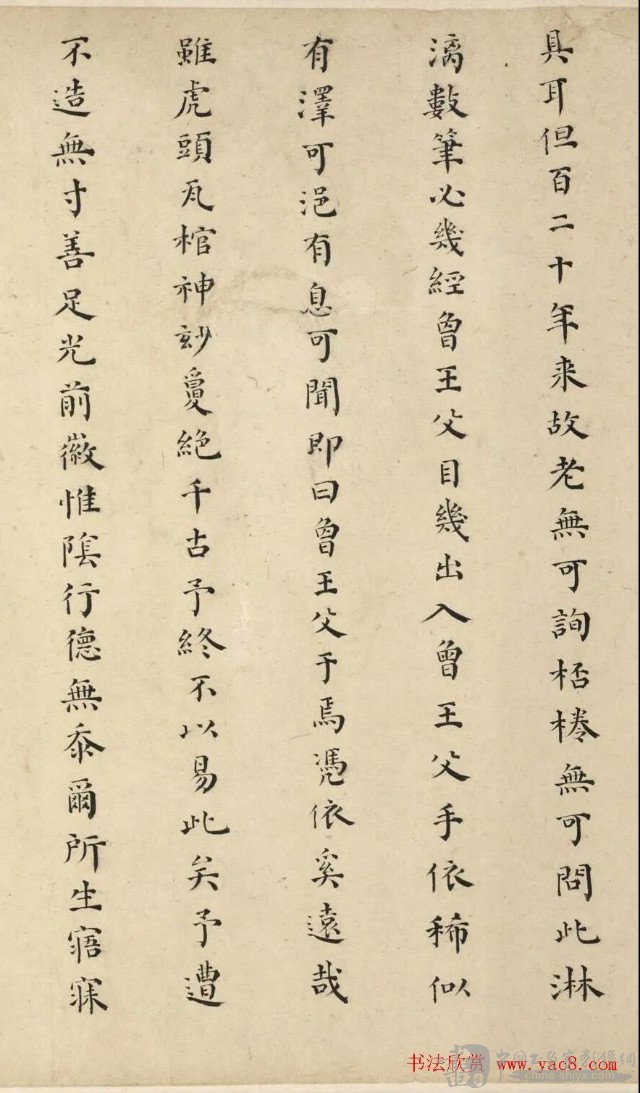 具耳但百二十年来故老無可詢桮棬無可問此淋
漓數筆必幾經曾王父目幾出入曾王父手依稀似
有澤可浥有息可聞即曰曾王父于焉憑依奚遠哉
雖虎頭瓦棺神玅敻絶千古予終不以易此矣予遭
不造無寸善足光前徽惟陰行德無忝爾所生寤寐
书法欣赏 www.yac8.com
www.china-shjyx.com